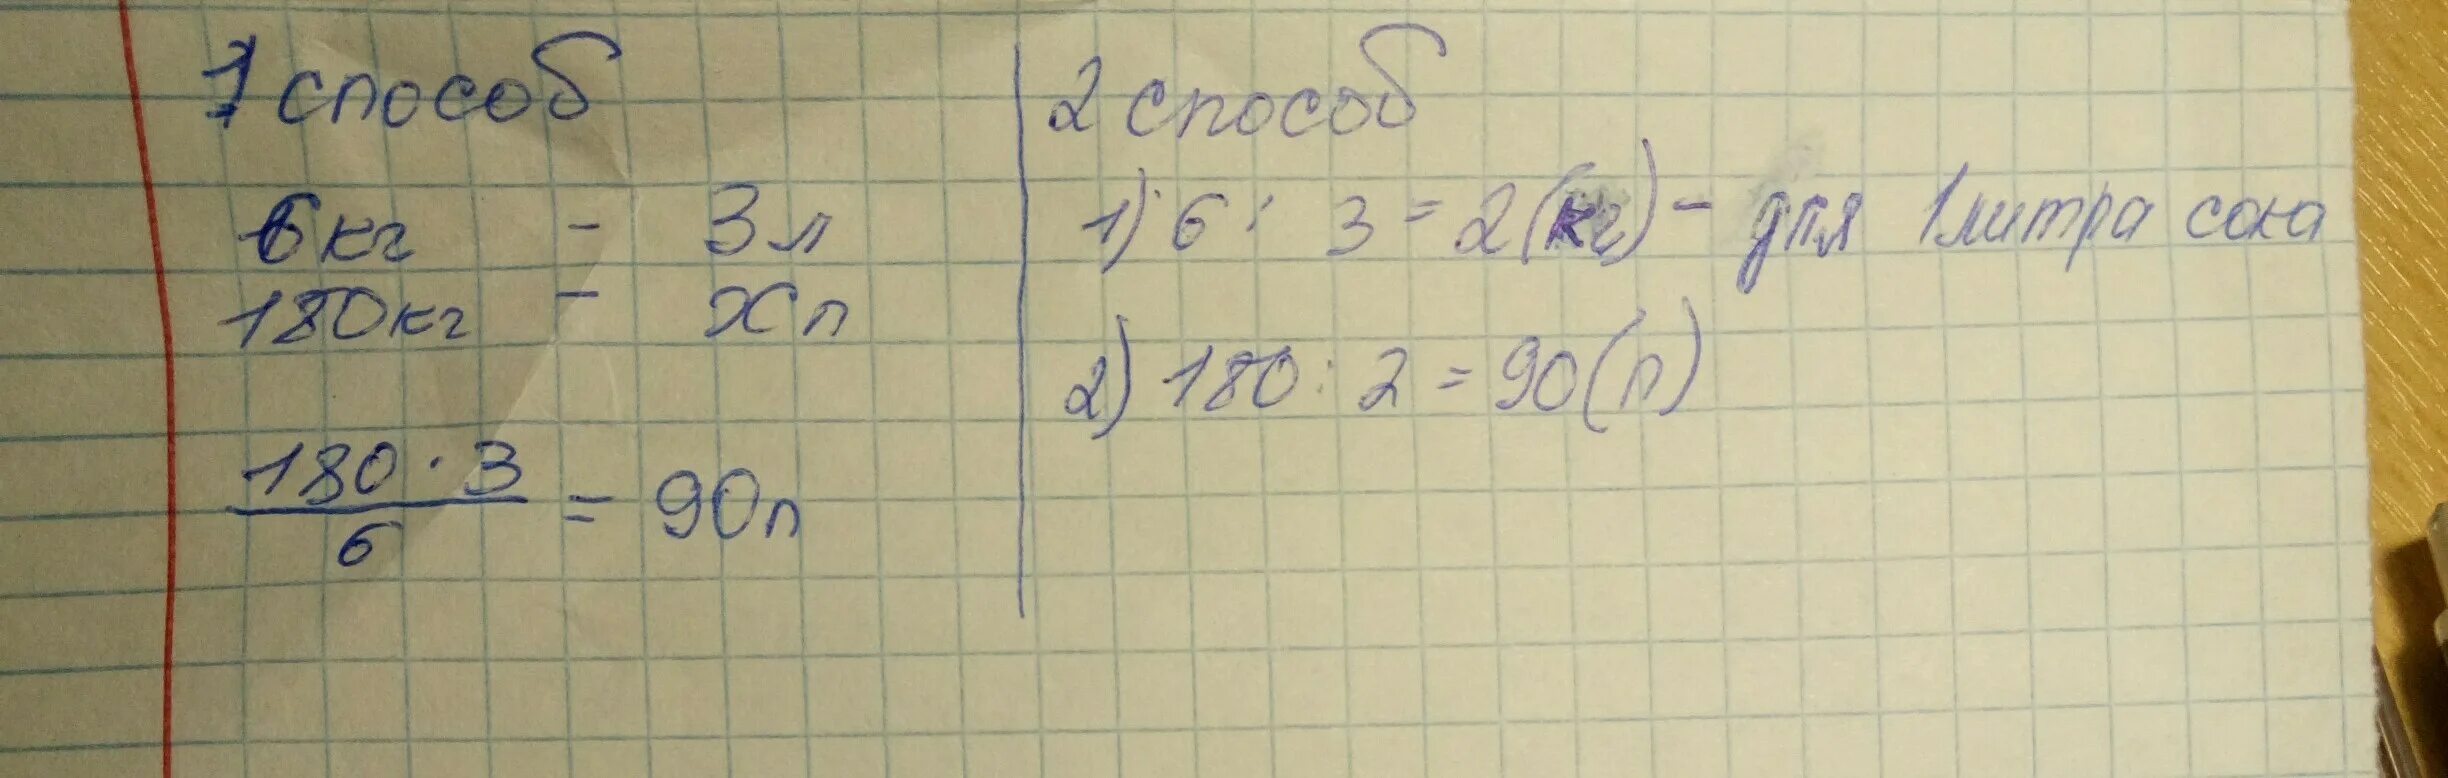 1 способ
6кг - 3л
180кг - хл
180 · 3 / 6 = 90л
2 способ
1) 6 : 3 = 2(кг) - для 1 литра сока
2) 180 : 2 = 90(л)